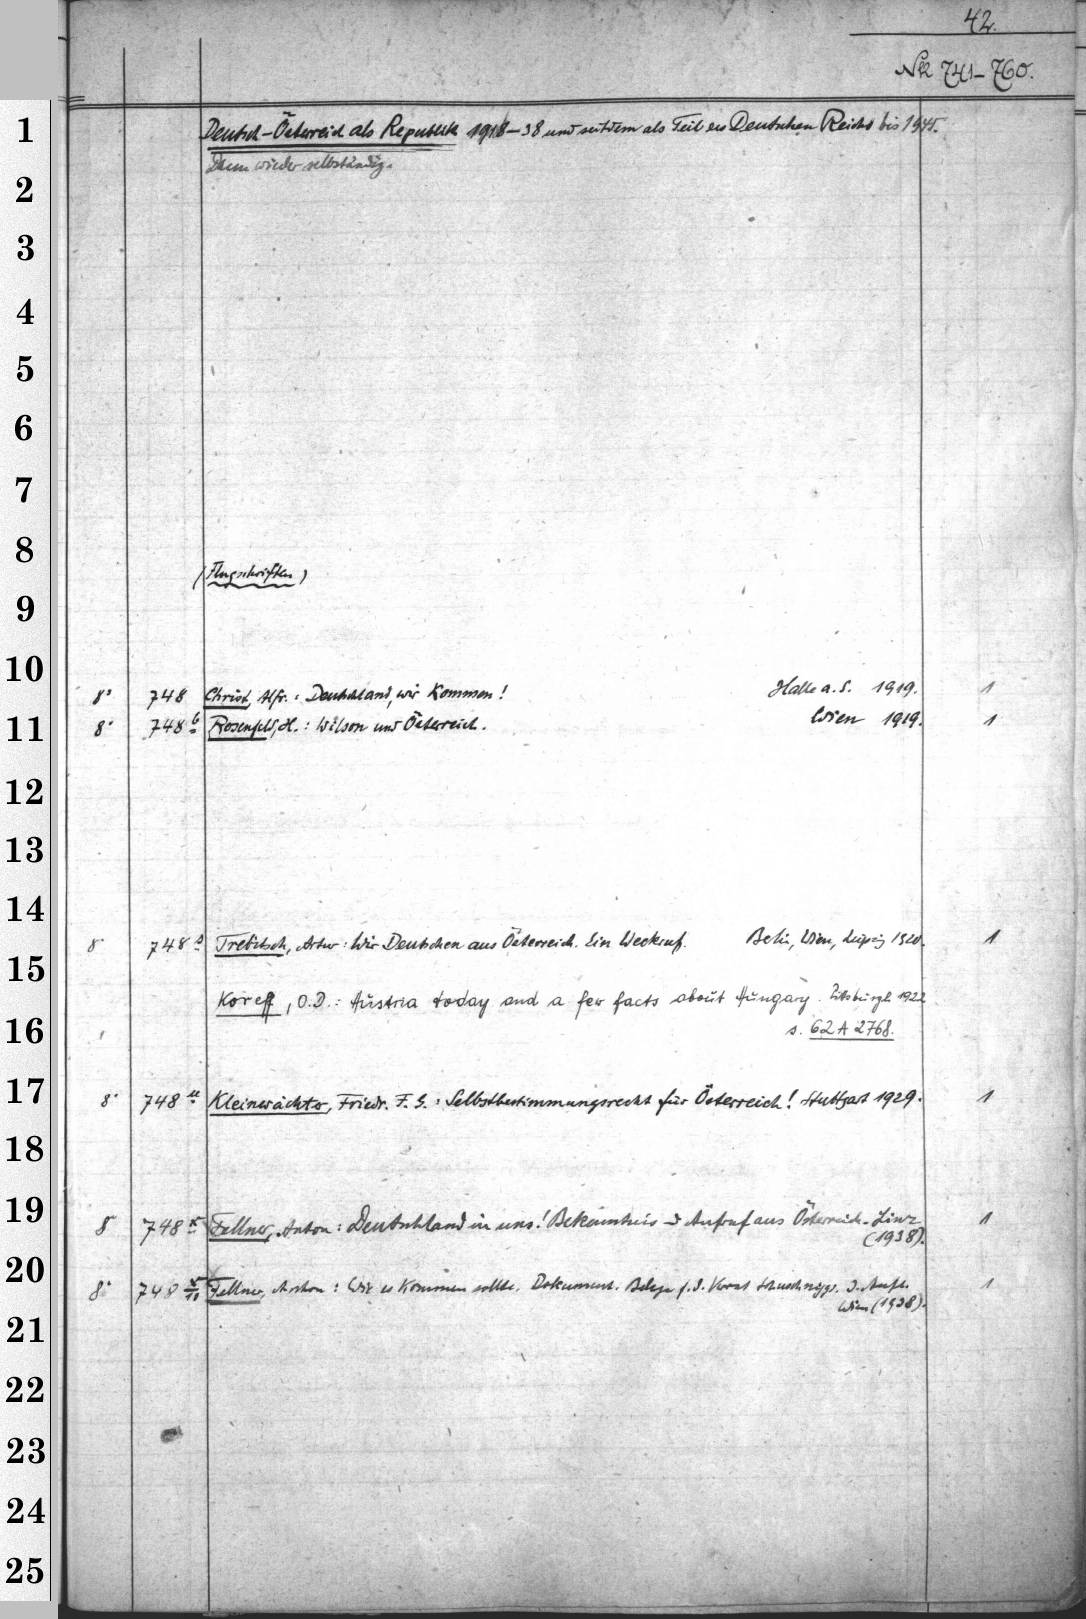 42.
Nk 741-760.
1
Deutsch-Österreich als Republik 1918-38 und seitdem als Teil des Deutschen Reichs bis 1945.
2
Dann wieder selbständig.
3
4
5
6
7
8
(Flugschriften)
9
10
8° 748 Christ, Alfr.: Deutschland, wir kommen! Halle a. S. 1919. 1
11
8° 748 b Rosenfeld, H.: Wilson und Österreich. Wien 1919. 1
12
13
14
8° 748 s Trebitsch, Artur: Wir Deutschen aus Österreich. Ein Weckruf. Berlin, Wien, Leipzig 1920. 1
15
Koreff, O.D.: Austria today and a few facts about Hungary. Pittsburgh 1922
16
s. 62 A 2768.
17
8° 748 u Kleinwächter, Friedr. F. G.: Selbstbestimmungsrecht für Österreich! Stuttgart 1929. 1
18
19
8° 748 x Fellner, Anton: Deutschland in uns! Bekenntnis u Aufruf aus Österreich. Linz 1
(1938).
20
8° 748 x/11 Fellner, Anton: Wie es kommen sollte. Dokument. Belege f. d. Verrat Schuschniggs. 3. Aufl. 1
Wien (1938).
21
22
23
24
25